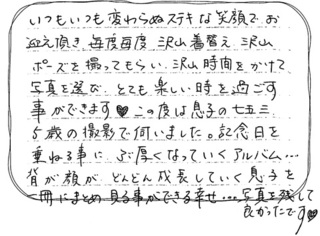 いつもいつも変わらぬステキな笑顔で、お
迎え頂き、毎度毎度、沢山着替え、沢山
ポーズを撮ってもらい、沢山時間をかけて
写真を選び、とても楽しい時を過ごす
事ができます♥ この度は息子の七五三
5歳の撮影で伺いました。記念日を
重ねる事に、ぶ厚くなっていくアルバム…
背が顔が、どんどん成長していく息子を
一冊にまとめ見る事ができる幸せ…写真を残して
良かったです♥